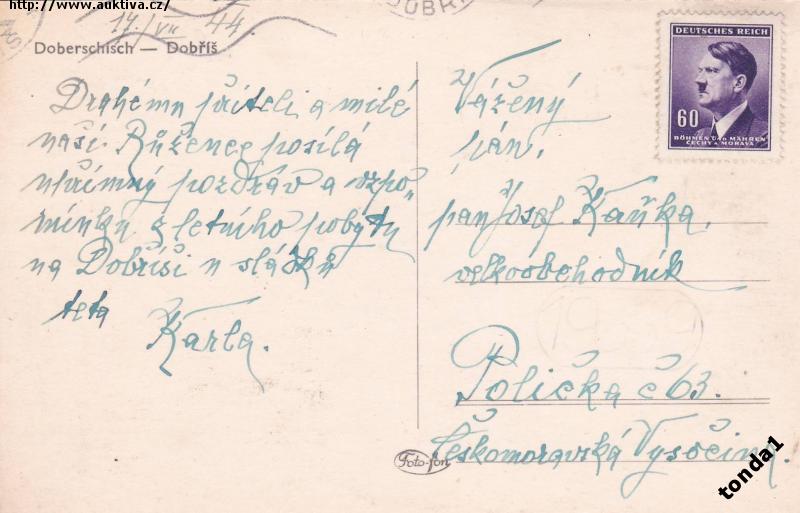 http://www.auktiva.cz/
14. VII 44.
DOBŘ
Doberschisch — Dobříš
Drahému příteli a milé
naší Růžence posílá
upřímný pozdrav a vzpo-
mínku z letního pobytu
na Dobříši u sládků
teta
Karla.
DEUTSCHES REICH
60
BÖHMEN U. MÄHREN
ČECHY A MORAVA
Vážený
pán,
pan Josef Kaňka,
velkoobchodník
Polička č 63.
Českomoravská Vysočina.
Foto-fon
tonda1